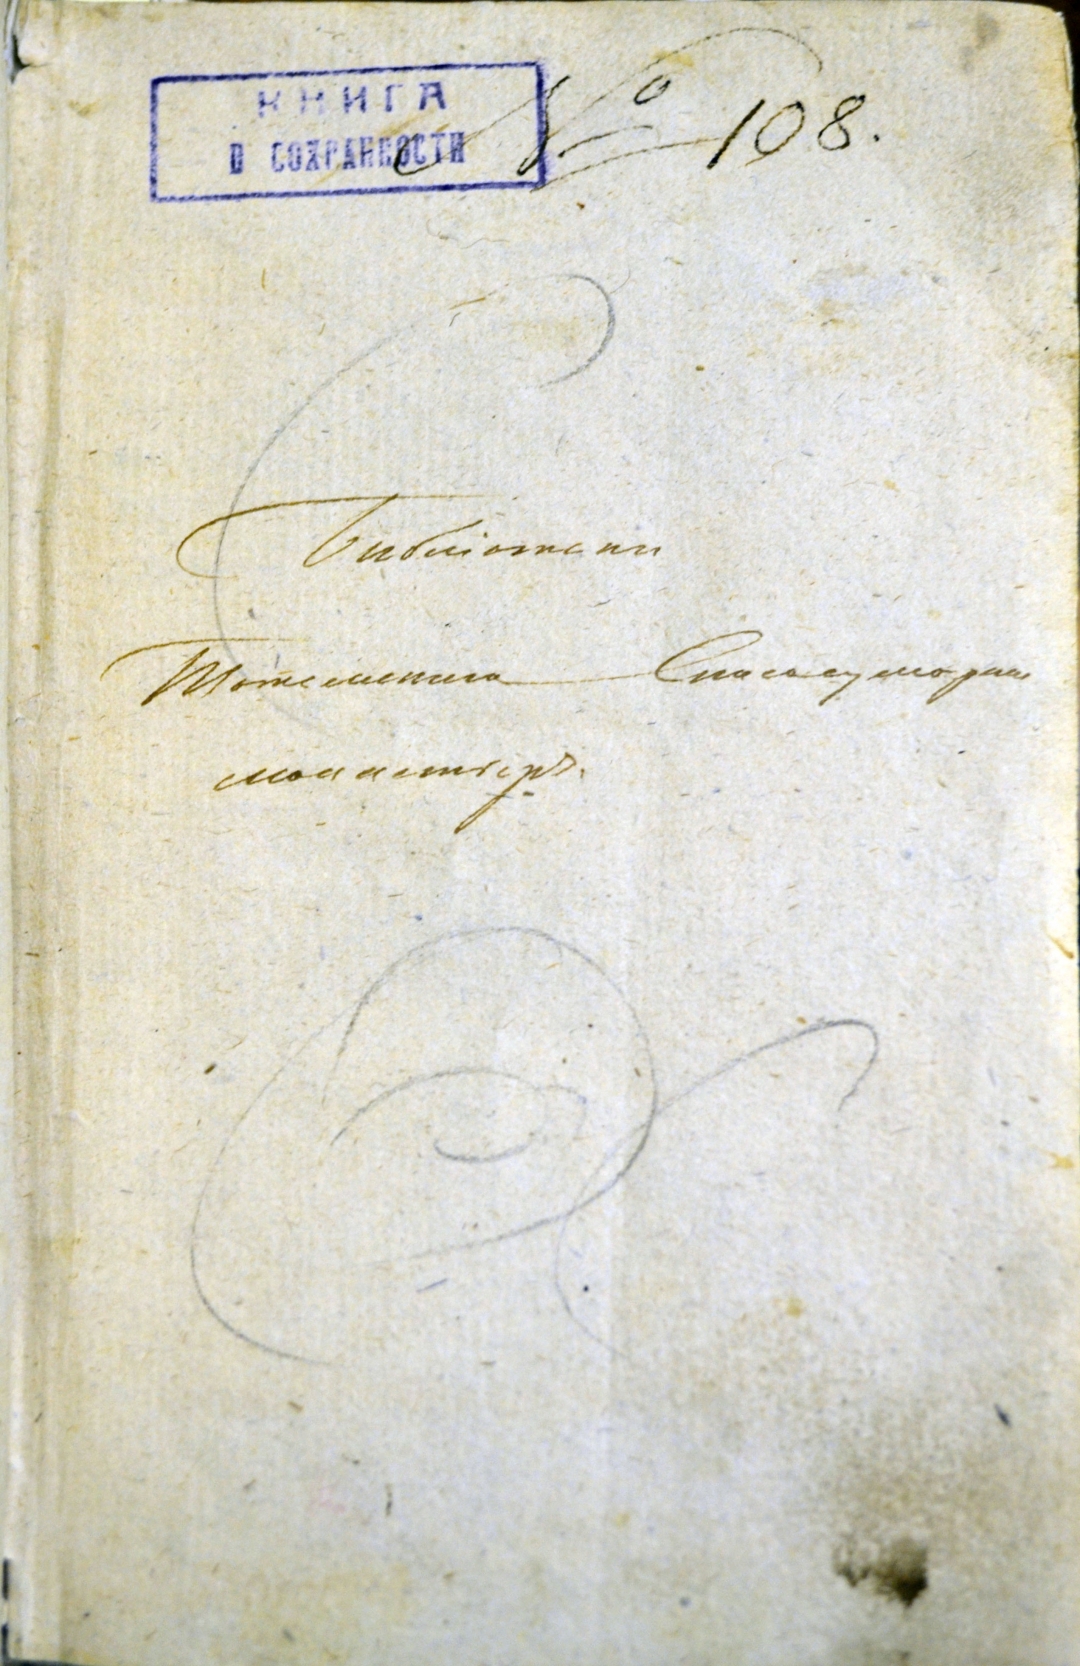 КНИГА
В СОХРАННОСТИ
№ 108.
Библіотеки
Тотемскаго Спасосуморин
монастыря.